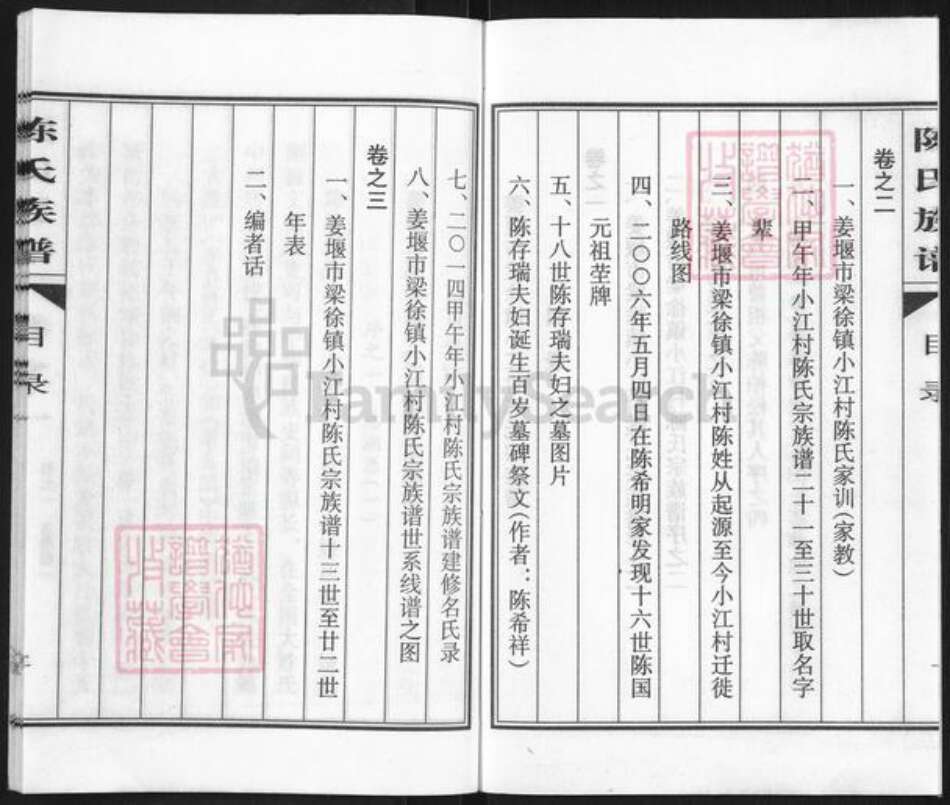 陈氏族谱
目录
卷之二
一、姜堰市梁徐镇小江村陈氏家训（家教）
二、甲午年小江村陈氏宗族谱二十一至三十世取名字
辈
三、姜堰市梁徐镇小江村陈姓从起源至今小江村迁徙
路线图
四、二〇〇六年五月四日在陈希明家发现十六世陈国
元祖茔牌
五、十八世陈存瑞夫妇之墓图片
六、陈存瑞夫妇诞生百岁墓碑祭文（作者：陈希祥）
七、二〇一四甲午年小江村陈氏宗族谱建修名氏录
八、姜堰市梁徐镇小江村陈氏宗族谱世系线谱之图
卷之三
一、姜堰市梁徐镇小江村陈氏宗族谱十三世至廿二世
年表
二、编者话
陈氏族谱
目录
FamilySearch